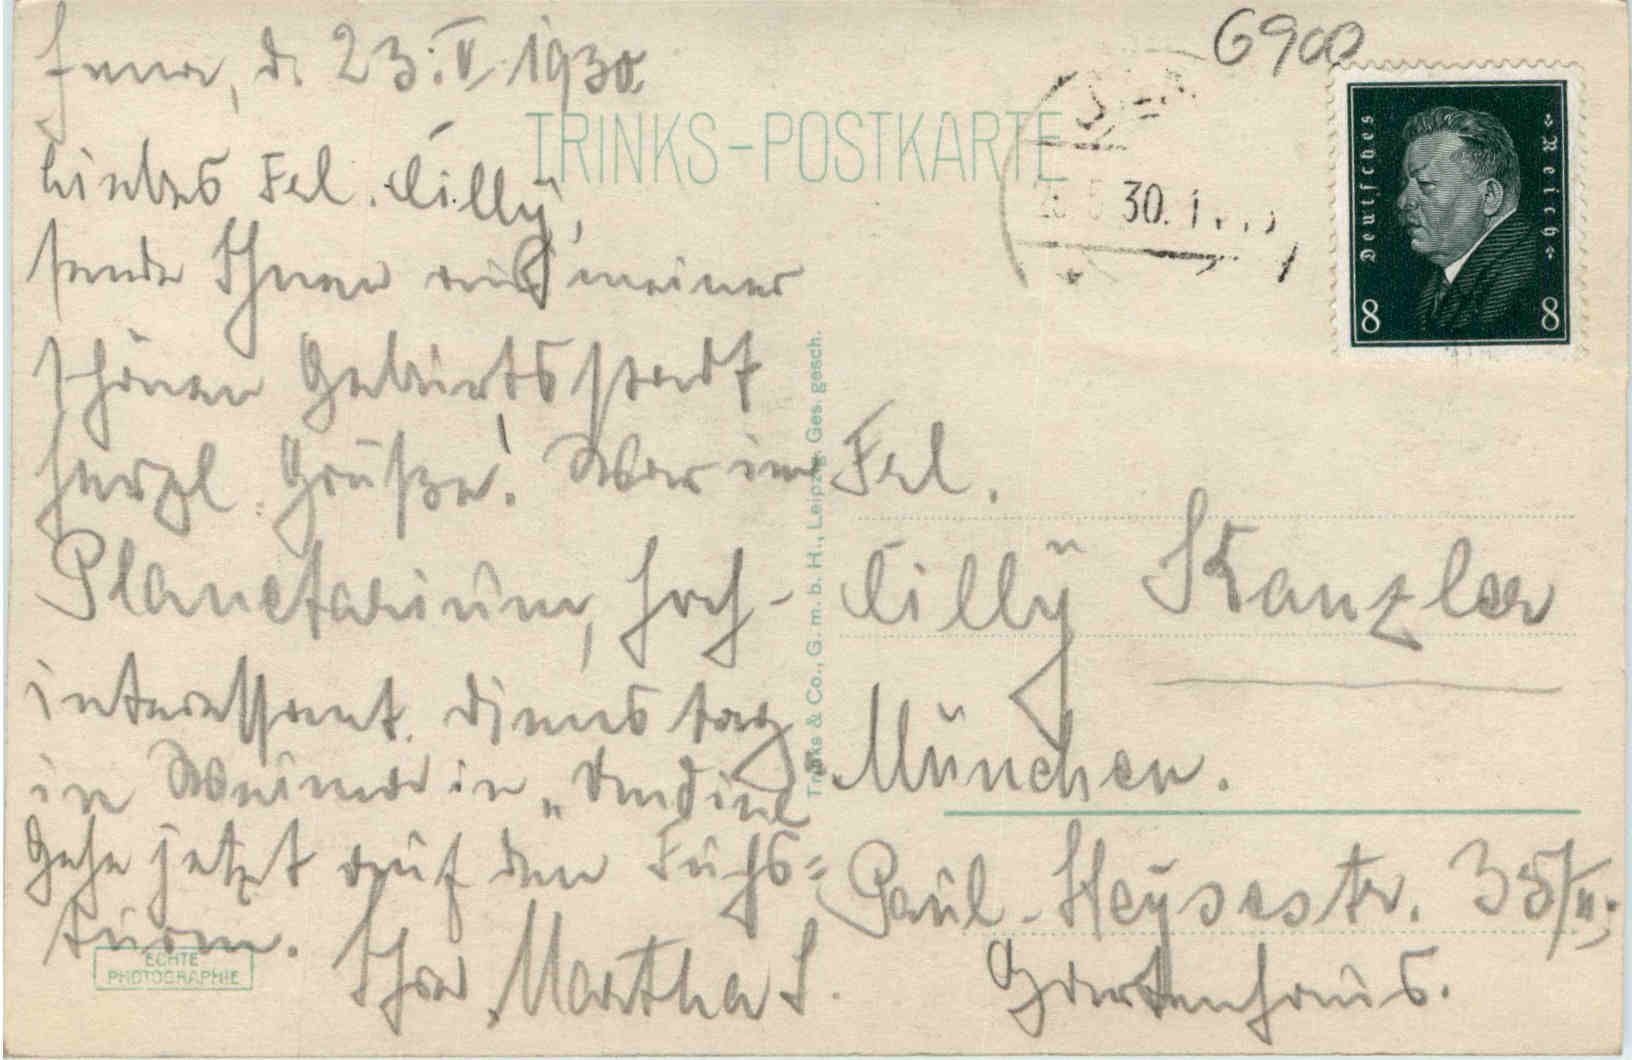 Jena, d. 23.V.1930
Liebes Frl. Cilly,
sende Ihnen aus meiner
schönen Geburtsstadt
herzl. Grüße! War im
Planetarium, hoch-
interessant. Dienstag
in Weimar in „Undine
Gehe jetzt auf den Fuchs-
turm. Ihre Martha S.
TRINKS-POSTKARTE
6900
30.
Deutsches Reich
8 8
Trinks & Co., G. m. b. H., Leipzig. Ges. gesch.
Frl.
Cilly Kanzler
München.
Paul-Heysestr. 35/II.
Gartenhaus.
ECHTE
PHOTOGRAPHIE